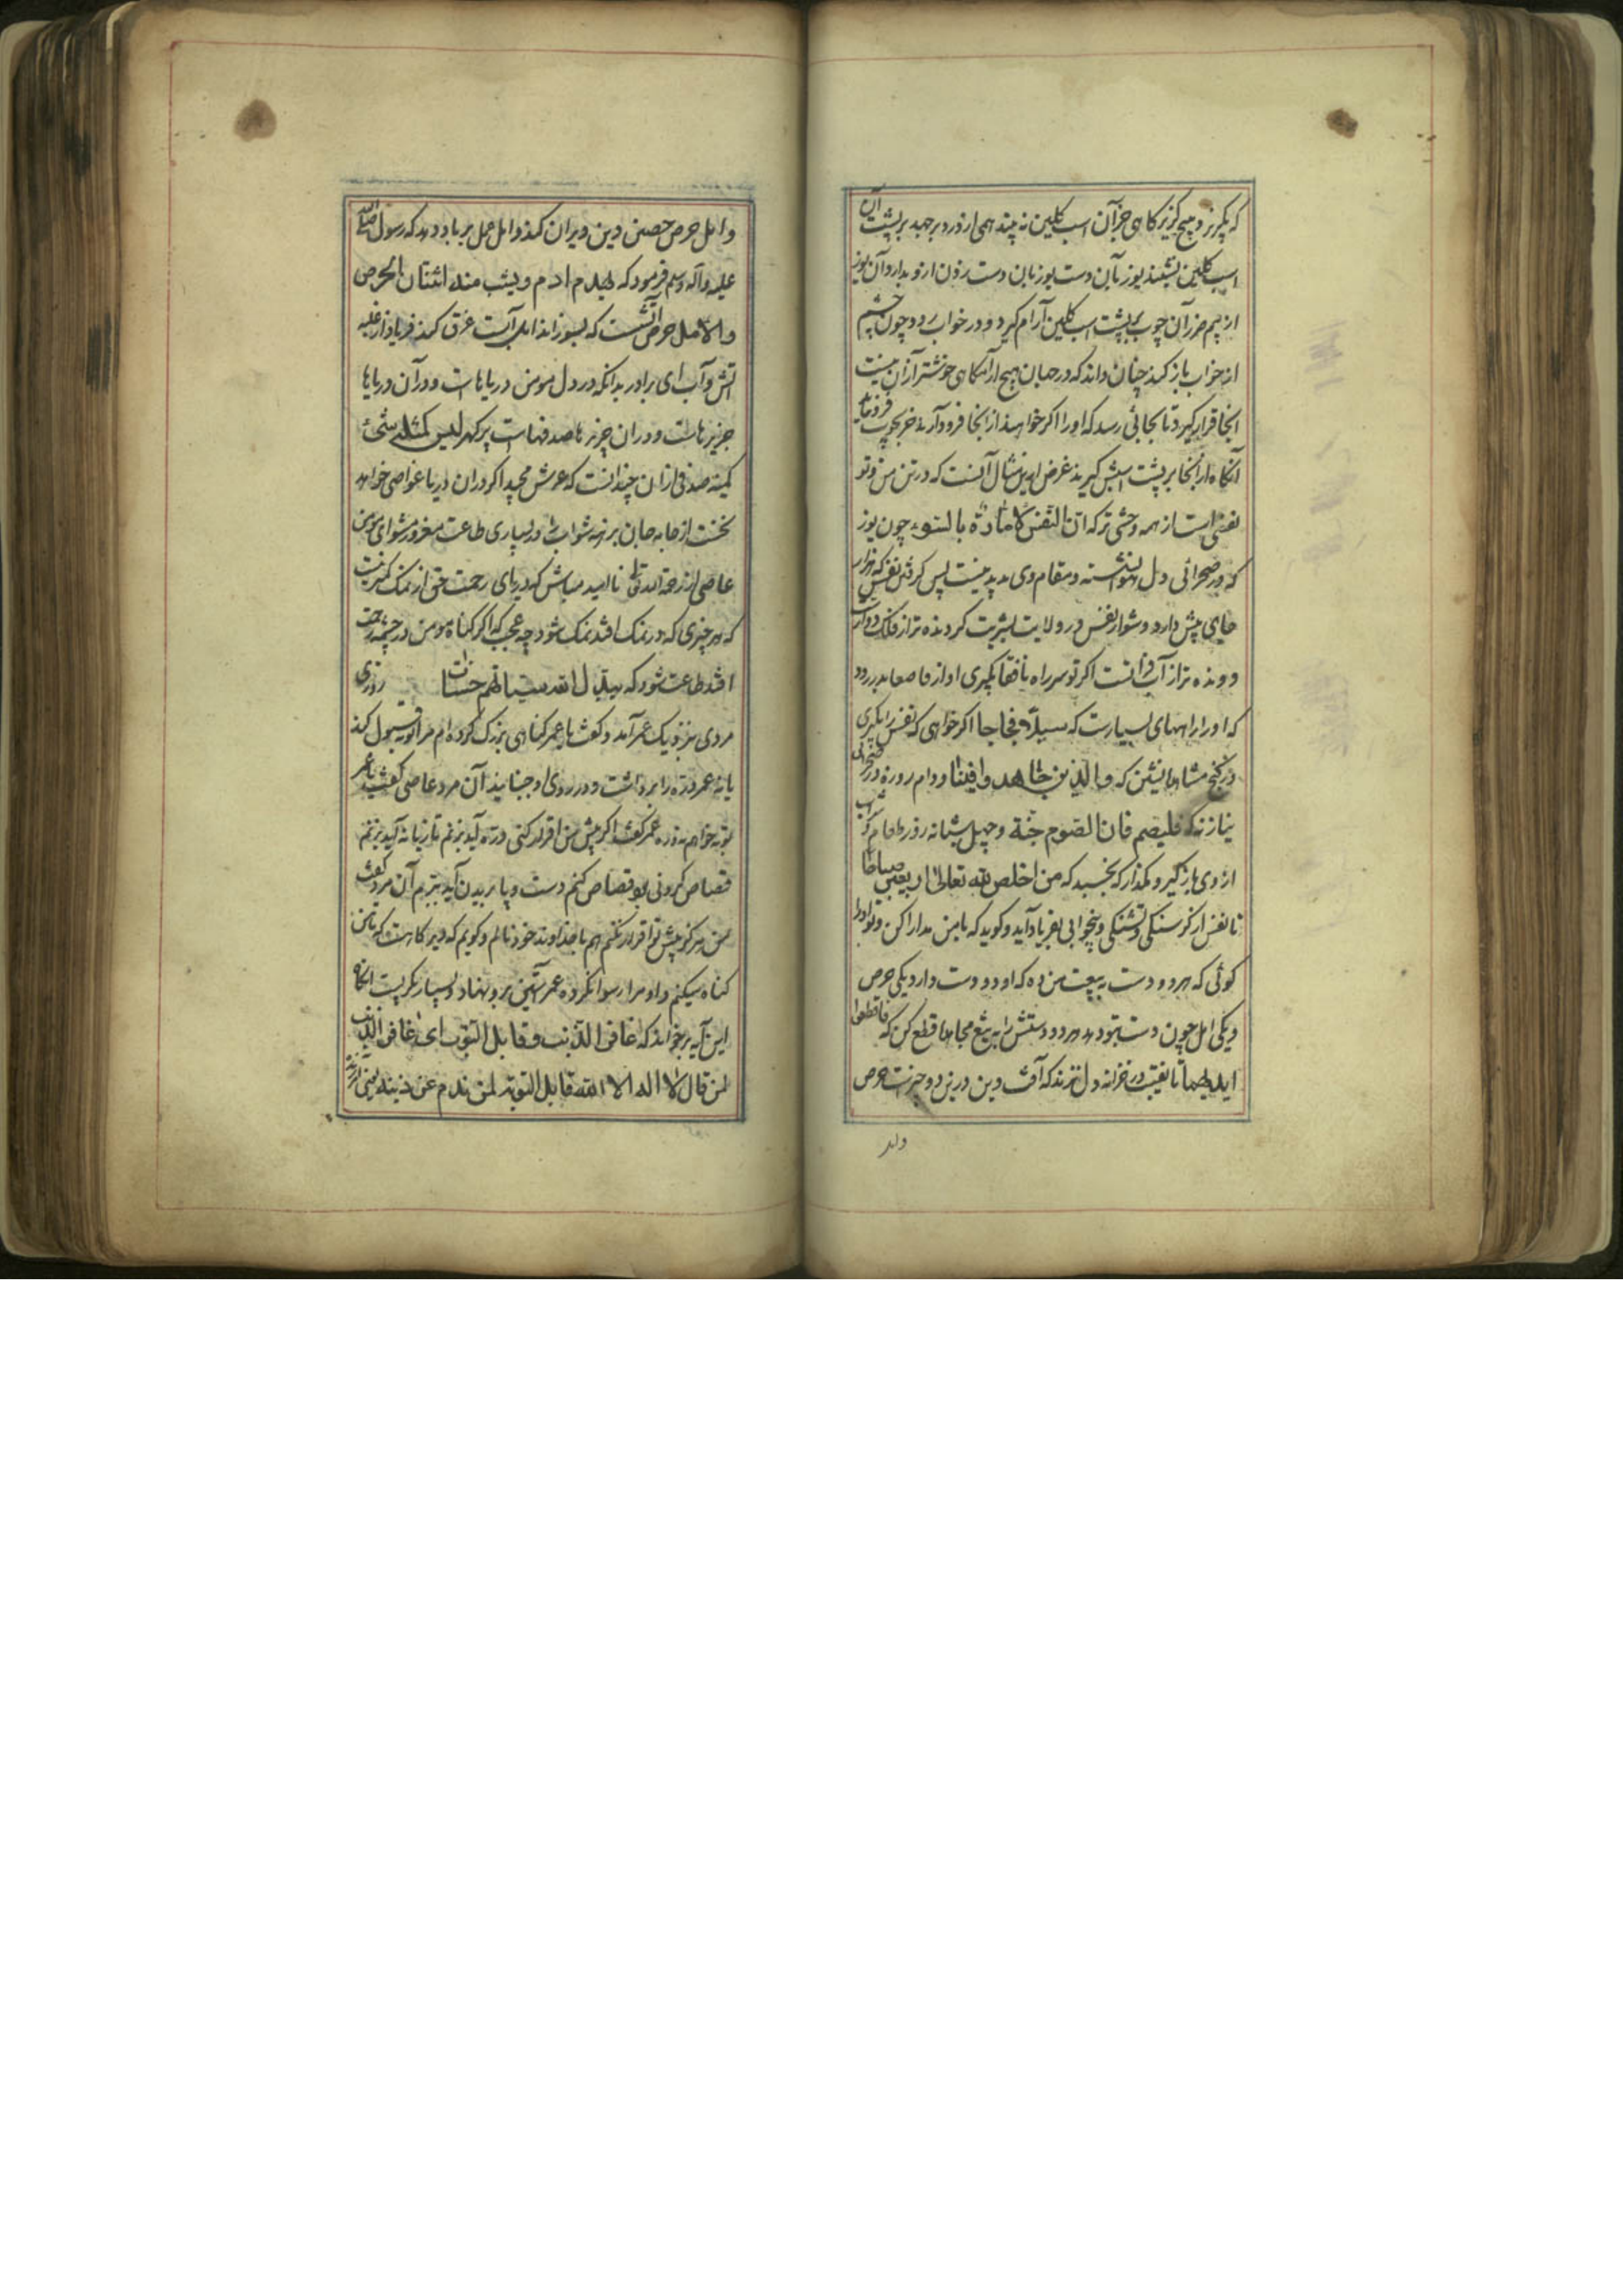 که بگریزد هیچ گریزگاهی جز آن اسب گلین نه بیند همی از درد برجهد بر پشت آن
اسب گلین نشیند یوزبان دست یوزبان دست زدن ازو بدارد آن یوز
از بیم ضرر آن چوب بر پشت اسب گلین آرام گیرد و در خواب رود چون چشم
از خواب باز کند چنان داند که در جهان هیچ آرامگاهی خوشتر از آن نیست
آنجا قرار گیرد تا بجائی رسد که او را اگر خواهند از آنجا فرود آرند جز بچوب فرو نیاید
آنگاه از آنجا بر پشت اسبش گیرند غرض ازین مثال آنست که در تن من و تو
نفسی است از همه وحشی تر که ان النفس لامارة بالسوء چون یوز
که در صحرائی دل نشسته و مقام وی پدید نیست پس گرفتن نفس که هزار
جای پیش دارد دشوار نفس در ولایت بشریت گردنده تر از فلک دوارست
و رونده تر از آب روانست اگر تو سر راه نافقا بگیری او از قاصعا بدر رود
که او را راههای بسیارست که سبلا فجاجا اگر خواهی که نفس را بگیری
در کنج مشاهده بنشین که والذین جاهدوا فینا و دام روزه در صحرائی
نیاز نه که فلیصم فان الصوم جنة و چهل شبانه روز طعام و شراب
از وی باز گیر و مگذار که بخسبد که من اخلص لله تعالی اربعین صباحا
تا نفس از گرسنگی و تشنگی و بیخوابی بفریاد آید و گوید که با من مدارا کن و تو او را
گوئی که هر دو دست به بیعت من ده که او دو دست دارد یکی حرص
و یکی امل چون دست بتو دهد هر دو دستش را به تیغ مجاهده قطع کن که فاقطعوا
ایدیهما تا نقب در خزانه دل نزند که آفت دین در نزد دو چیزست حرص
وامل
وامل حرص حصن دین ویران کند و امل عمل بر باد دهد که رسول صلی الله
علیه و آله وسلم فرمود که یهدم ادم ویشب منه اثنتان الحرص
والامل حرص آتشست که بسوزاند امل آبست غرق کند فریاد از غلبه
آتش و آب ای برادر بدانکه در دل مومن دریاهاست و در آن دریاها
جزیرهاست و در آن جزیرها صدفهاست پر گهر لیس کمثله شئ
کمینه صدفی از آن چندانست که عرش مجید اگر در آن دریا غواصی خواهد
نخست از جامه جان برهنه شو اب و بسیاری طاعت مغرور مشو ای مومن
عاصی از رحمة الله تعالی ناامید مباش که دریای رحمت حق از نمک کمتر نیست
که هر چیزی که در نمک افتد نمک شود چه عجب که اگر گناه مومن در چشمه رحمت
افتد طاعت شود که یبدل الله سیئاتهم حسنات روزی
مردی بنزدیک عمر آمد و گفت یا عمر گناهی بزرگ کرده ام مرا توبه قبول کند
یا نه عمر دره را برداشت و در روی او جنبانید آن مرد عاصی گفت یا عمر
توبه خواهم نه دره عمر گفت اگر پیش من اقرار کنی دره آید بزنم تازیانه آید بزنم
قصاص کردنی بود قصاص کنم دست و پا بریدن آید ببرم آن مرد گفت
من هرگز پیش تو اقرار نکنم هم با خداوند خود نالم و گویم که دیر کاهست که تا من
گناه میکنم و او مرا رسوا نکرده عمر آستین بر رو نهاد و بسیار بگریست آنگاه
این آیه برخواند که غافر الذنب و قابل التوب ای غافر الذنب
لمن قال لا اله الا الله قابل التوبة لمن ندم عن ذنبه یعنی آمرزنده